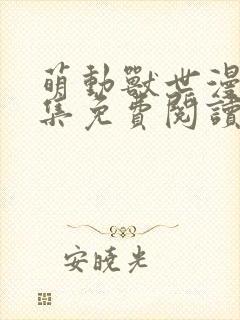 萌動獸世漫
集免費閱讀
安曉光